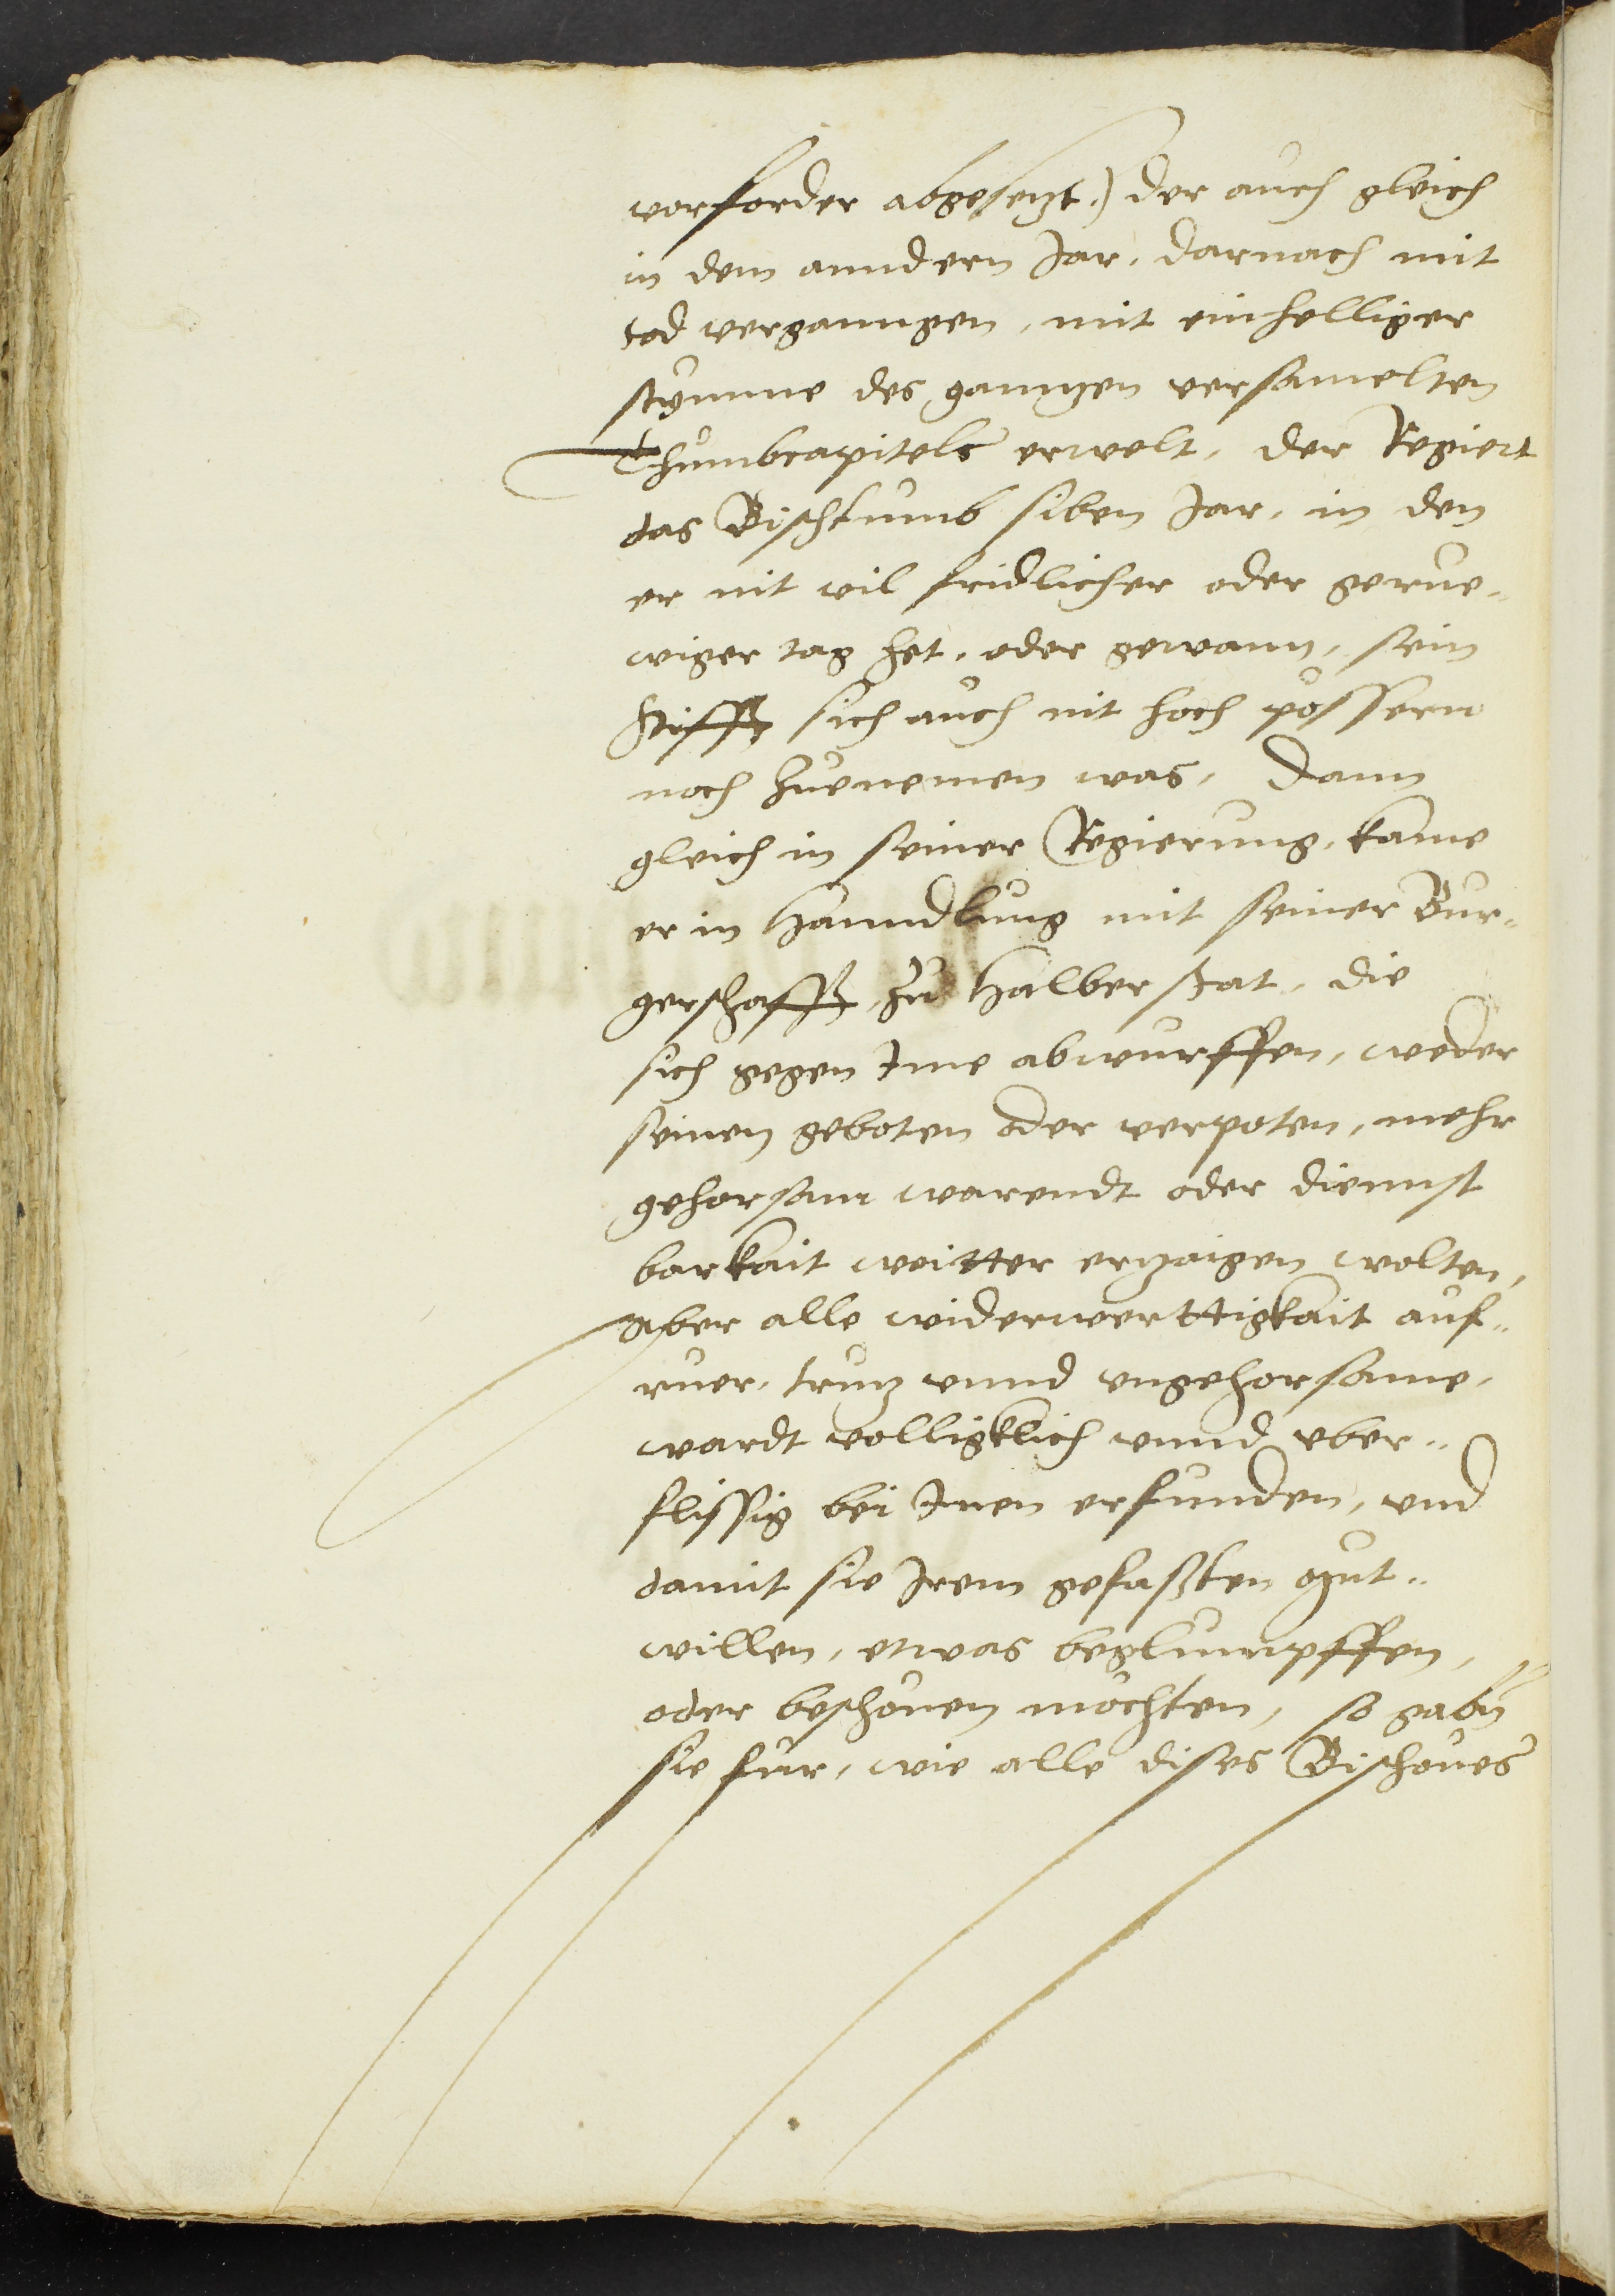 vorforder abgesetzt.) der auch gleich
in dem anndern Jar, darnach mit
tod verganngen, mit einhelliger
stymme des ganntzen versamelten
Thumbcapitels erwelt, der Regiert
das Bischtumb siben Jar, in den
er nit vil fridlicher oder gerue-
wiger tag het, oder gewann, sein
Stifft sich auch nit hoch possern
noch zuenemen was, dann
gleich in seiner Regierung, kame
er in Hanndlung mit seiner Bur-
gerschafft, zu Halberstat, die
sich gegen Jme abwurffen, weder
seinen geboten oder verpoten, mehr
gehorsam warendt oder diennst
barkait weitter erzaigen wolten,
Aber alle widerwerttigkait auf-
ruer, trutz vnnd vngehorsame,
wardt volligklich vnnd vber-
flissig bei Jnen erfunden, vnd
damit sie Jrem gefaßten
willen, etwas beglumpffen,
oder beschönen möchten, so gabn
sie für, wie alle dises Bischoues